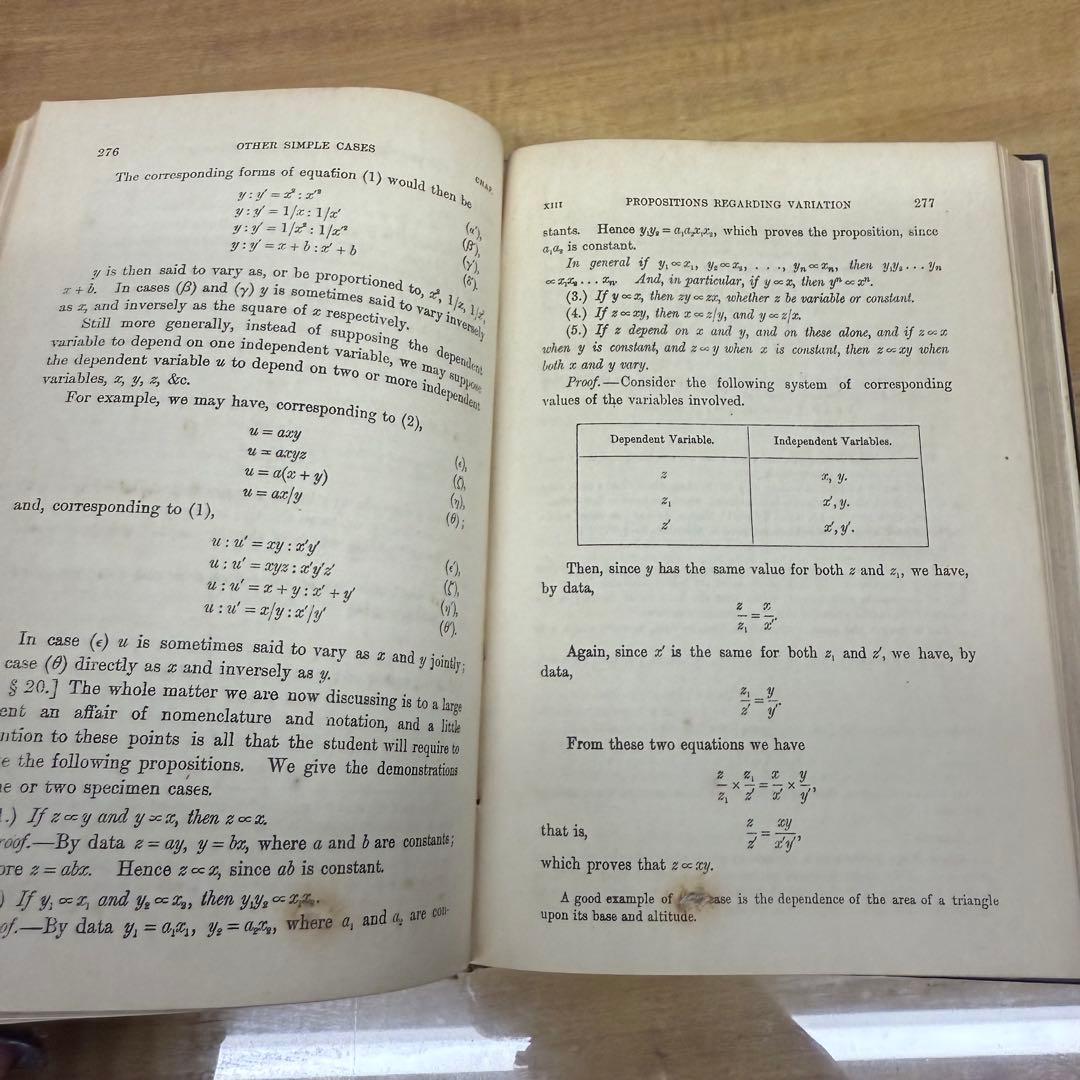 276
OTHER SIMPLE CASES
CHAP.
The corresponding forms of equation (1) would then be
y : y′ = x² : x′²
(α′),
y : y′ = 1/x : 1/x′
(β′),
y : y′ = 1/x² : 1/x′²
(γ′),
y : y′ = x + b : x′ + b
(δ′).
y is then said to vary as, or be proportioned to, x², 1/x, 1/x²,
x + b. In cases (β) and (γ) y is sometimes said to vary inversely
as x, and inversely as the square of x respectively.
Still more generally, instead of supposing the dependent
variable to depend on one independent variable, we may suppose
the dependent variable u to depend on two or more independent
variables, x, y, z, &c.
For example, we may have, corresponding to (2),
u = axy
(ε),
u = axyz
(ζ),
u = a(x + y)
(η),
u = ax/y
(θ);
and, corresponding to (1),
u : u′ = xy : x′y′
(ε′),
u : u′ = xyz : x′y′z′
(ζ′),
u : u′ = x + y : x′ + y′
(η′),
u : u′ = x/y : x′/y′
(θ′).
In case (ε) u is sometimes said to vary as x and y jointly;
case (θ) directly as x and inversely as y.
§ 20.] The whole matter we are now discussing is to a large
ent an affair of nomenclature and notation, and a little
ntion to these points is all that the student will require to
e the following propositions. We give the demonstrations
ne or two specimen cases.
1.) If z ∝ y and y ∝ x, then z ∝ x.
roof.—By data z = ay, y = bx, where a and b are constants;
ore z = abx. Hence z ∝ x, since ab is constant.
) If y₁ ∝ x₁ and y₂ ∝ x₂, then y₁y₂ ∝ x₁x₂.
of.—By data y₁ = a₁x₁, y₂ = a₂x₂, where a₁ and a₂ are con-
XIII
PROPOSITIONS REGARDING VARIATION
277
stants. Hence y₁y₂ = a₁a₂x₁x₂, which proves the proposition, since
a₁a₂ is constant.
In general if y₁ ∝ x₁, y₂ ∝ x₂, . . ., yₙ ∝ xₙ, then y₁y₂ . . . yₙ
∝ x₁x₂ . . . xₙ. And, in particular, if y ∝ x, then yⁿ ∝ xⁿ.
(3.) If y ∝ x, then zy ∝ zx, whether z be variable or constant.
(4.) If z ∝ xy, then x ∝ z/y, and y ∝ z/x.
(5.) If z depend on x and y, and on these alone, and if z ∝ x
when y is constant, and z ∝ y when x is constant, then z ∝ xy when
both x and y vary.
Proof.—Consider the following system of corresponding
values of the variables involved.
Dependent Variable.
Independent Variables.
z
x, y.
z₁
x′, y.
z′
x′, y′.
Then, since y has the same value for both z and z₁, we have,
by data,
z/z₁ = x/x′.
Again, since x′ is the same for both z₁ and z′, we have, by
data,
z₁/z′ = y/y′.
From these two equations we have
z/z₁ × z₁/z′ = x/x′ × y/y′,
that is,
z/z′ = xy/x′y′,
which proves that z ∝ xy.
A good example of case is the dependence of the area of a triangle
upon its base and altitude.